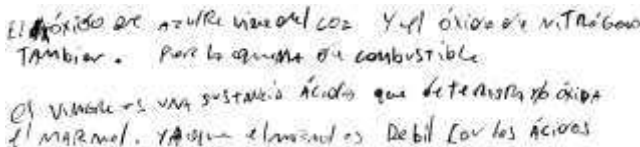 El óxido de azufre viene del CO2 Y el óxido de NITRÓGENO
TAMbien. Por la quema de combustible
el vinagre es UNA sustancia Ácida que deteriora y/o óxida
el MARMOL. YA que el marmol es Debil Con los Ácidos